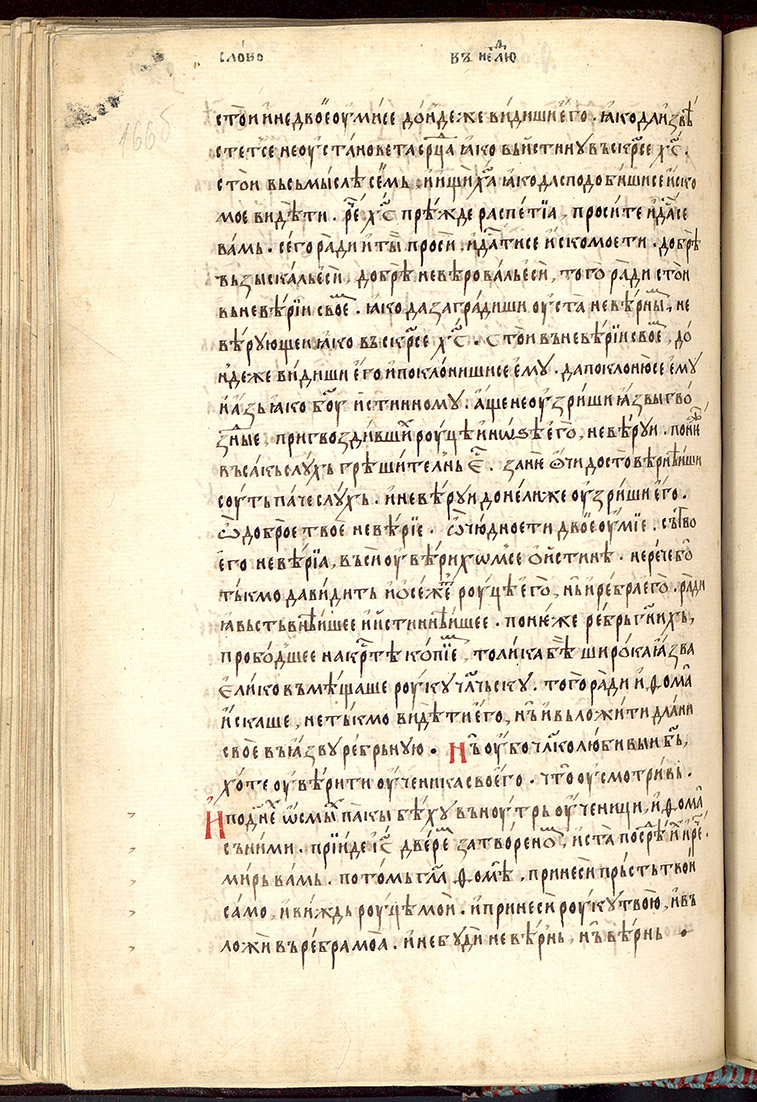 сло́во въ не҃лю
166б
стои и недвоеоумисе до́идеже видиши его . ꙗко да извѣ
стетсе неоустановета срⷣца ꙗко въистину въскр҃се х҃с .
стои въсь мыслѣ семь . и ищи х҃а ꙗко да сподобишисе иско
мое видѣти . рⷱ҇е х҃с прѣжде распетїа , просите и дастсе
вамь . сего ради и ты проси , и дастисе искомое ти . добрѣ
възыскаль еси , добрѣ невѣроваль еси , того ради стои
въ невѣрїи своеⷨ . ꙗко да заградиши оуста невѣрныⷨ , не
вѣрующеи ꙗко въскр҃се х҃с . стои въ невѣрїи своеⷨ , до
идеже видиши его и поклонишисе ему . да поклонюсе ему
и азь ꙗко б҃оу истинному . аще не оузриши ꙗзвы гво
зⷣные , пригвоздившиⷯ роуцѣ и нѡѕѣ его , не вѣруи . понⷤе
въсакъ слухъ грѣшителнь е҃ . зане очи достовѣрнѣиши
соуть паче слухъ . и не вѣруи донелиже оузриши его .
ѽ доброе твое невѣрїе . ѽ чюдности двоеоумїе . съ тво
его невѣрїа , въси оувѣрихѡмсе о истинѣ . не рече бо
тъкмо да видить и осежеⷮ роуцѣ его , нь и ребра его . ради
ꙗвьствьнѣишее и истиннѣишее . понеже ребрь гн҃ихъ ,
прободшее на крⷭ҇тѣ копїеⷨ , толика бѣ широка ꙗзва
елико въмѣщаше роуку чл҃чьску . того ради и фома
искаше , не тъкмо видѣти его , нь и въложити длани
свое въ ꙗзву ребрьную . Нь оубо чл҃колюбивыи б҃ь ,
хоте оувѣрити оученика своего . что оусмотри ви .
И по днеⷯ ѡсмыⷯ пакы бѣху вънутрь оученици , и фома
съ ними . прїиде і҃с двереⷨ затворенѡⷨ , и ста посрⷣѣ иⷯ и рⷱ҇е
мирь вамь . потомь гл҃а фомѣ . принеси прьсть твои
само , и виждь роуцѣ мои . и принеси роуку твою , и въ
ложи въ ребра моа . и не буди невѣрнь , нъ вѣрнь .